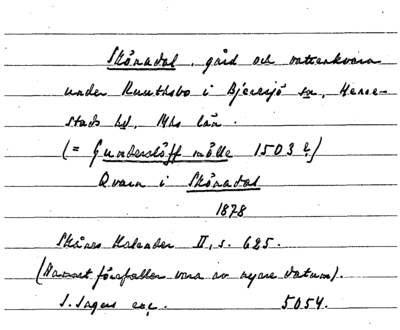 Skönadal, gård och vattenkvarn
under Knutsbo i Bjeresjö sn, Herre-
stads hd, Mhs län.
(= Gunderslöff mölle 1503 ?)
Qvarn i Skönadal
1878
Skånes Kalender II, s. 625.
(Namnet förefaller vara av nyare datum).
S. Sagers exc. 5054.